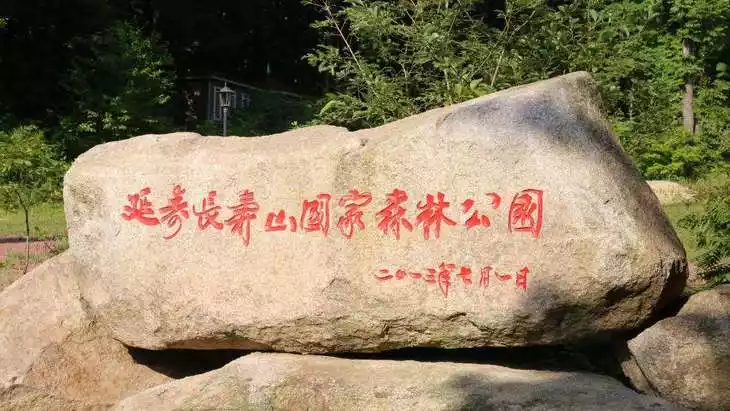 延寿长寿山国家森林公园
二〇一三年七月一日